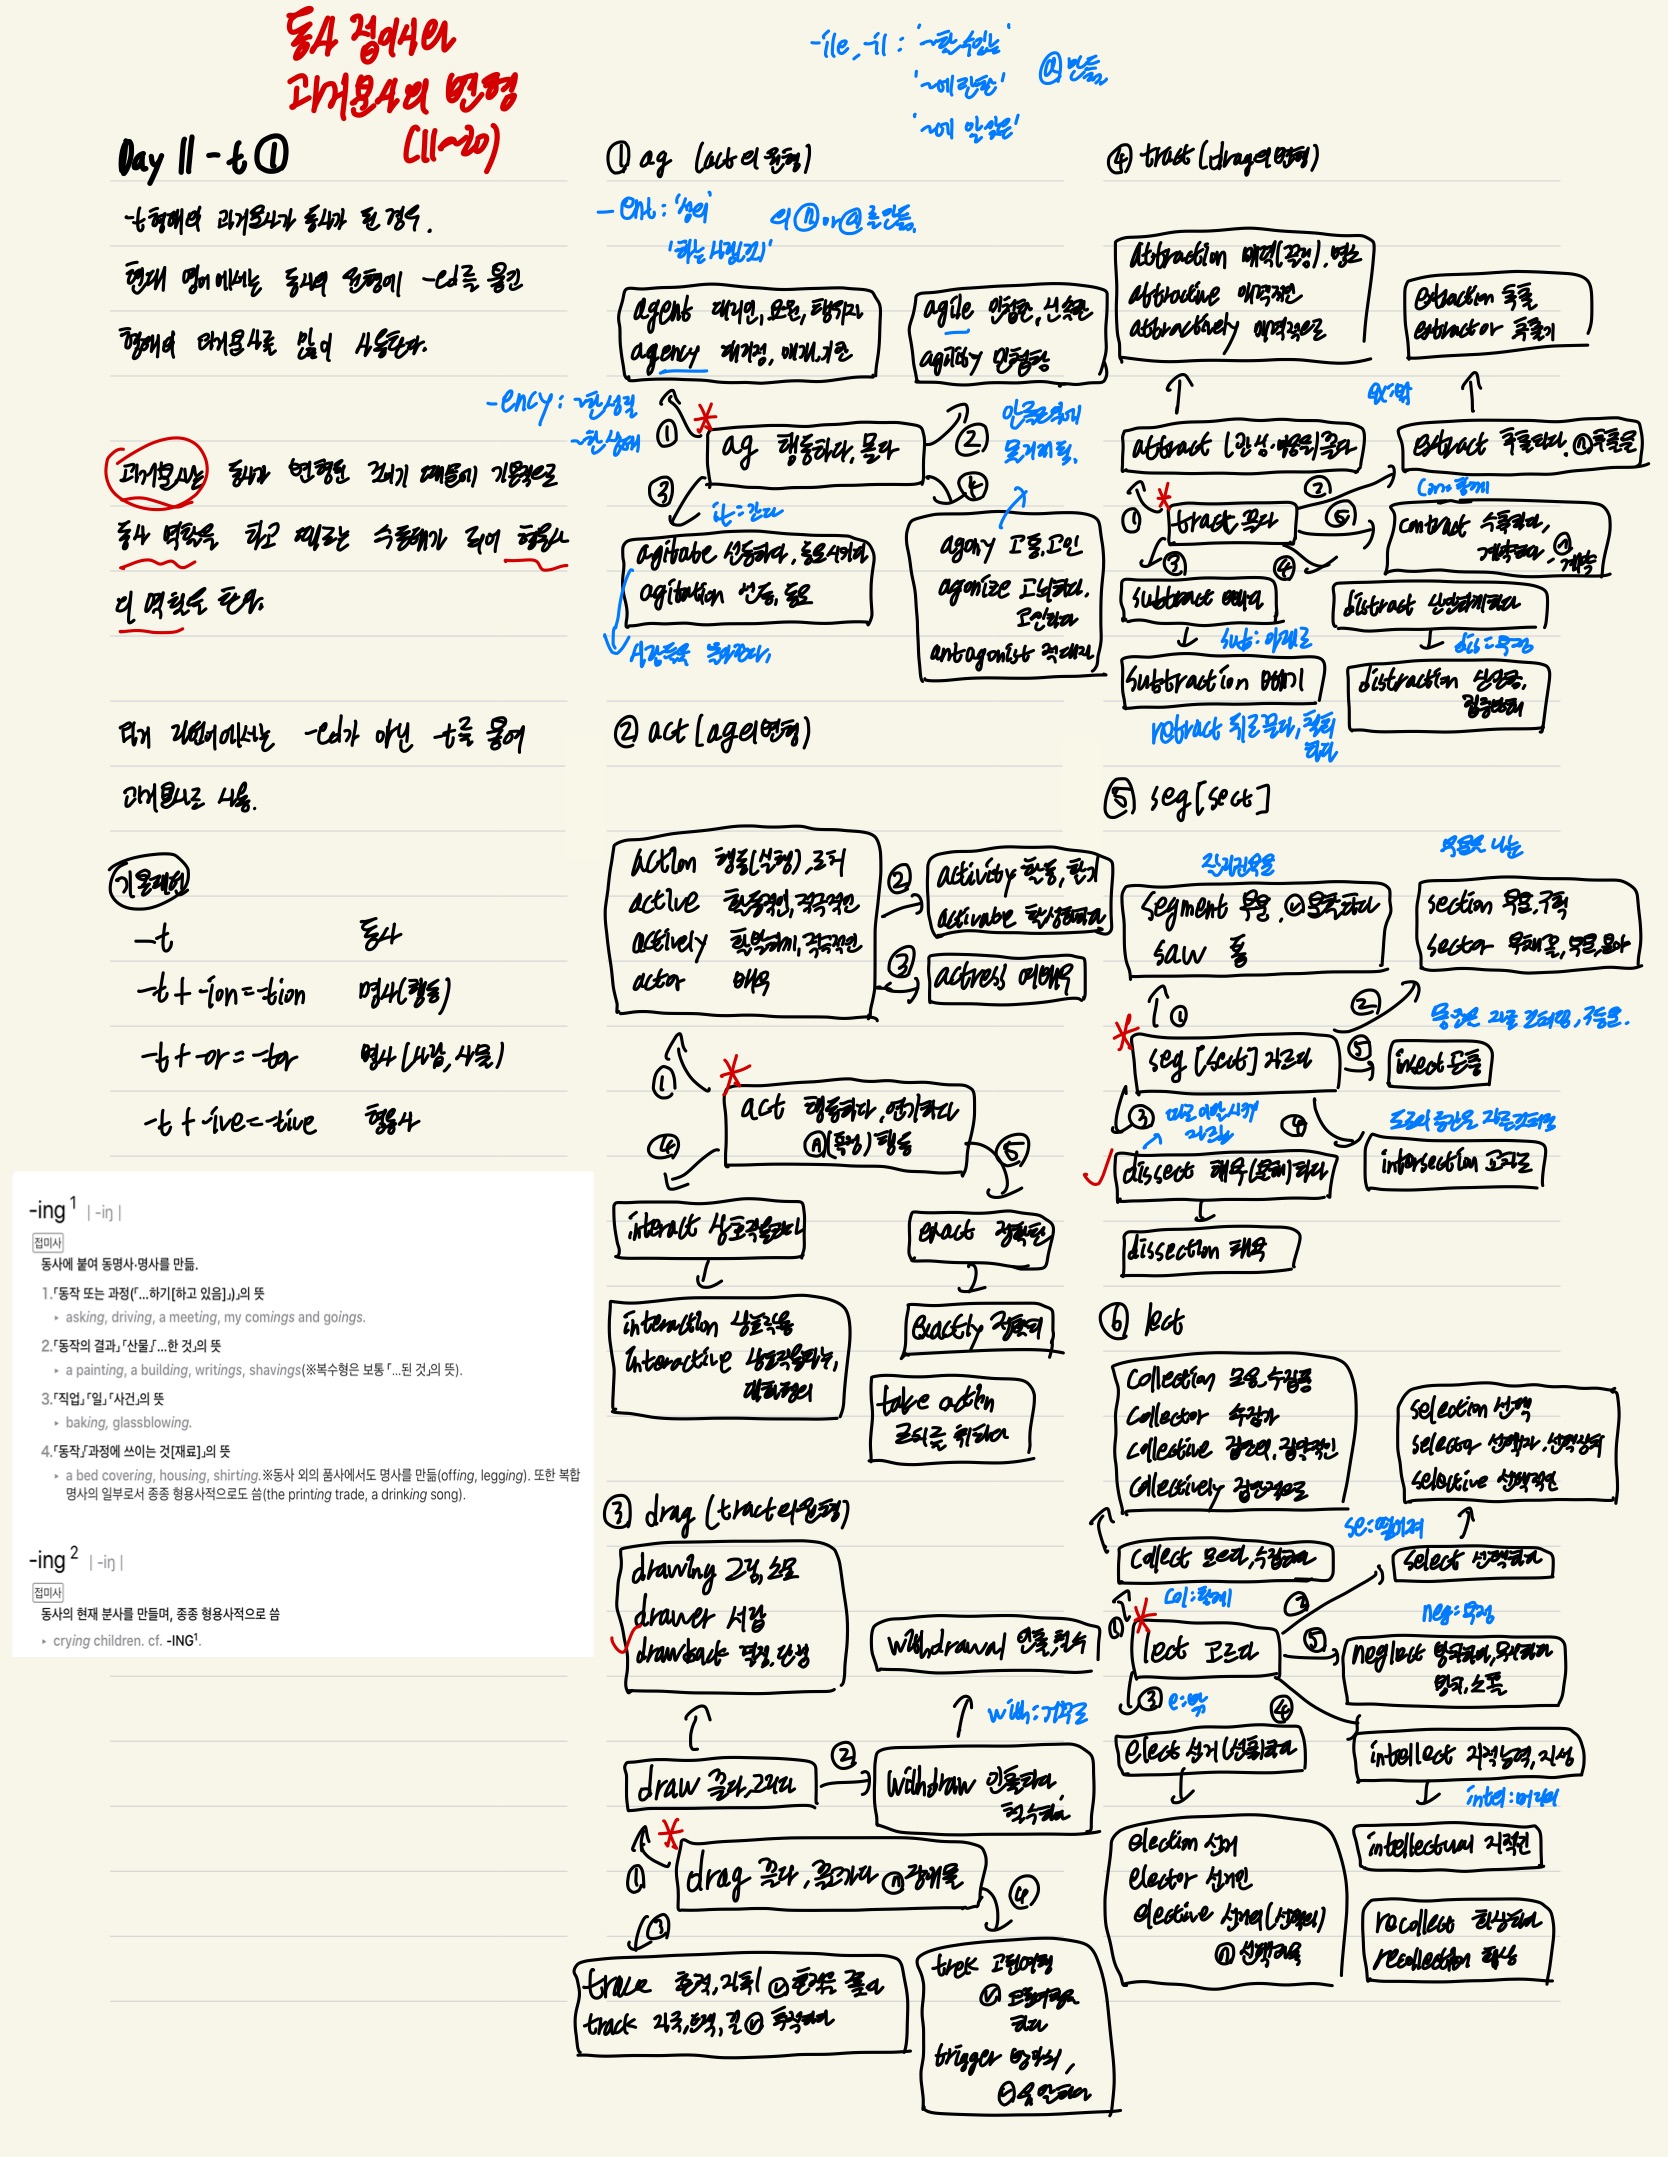 동사 접미사와
과거분사의 변형
(11~20)
Day 11 -t ①
-t 형태의 과거분사가 동사가 된 경우.
현대 영어에서는 동사의 원형에 -ed를 붙인
형태의 과거분사를 많이 사용한다.
과거분사는 동사가 변형된 것이기 때문에 기본적으로
동사 역할을 하고 때로는 수동태가 되어 형용사
의 역할을 한다.
과거 라틴어에서는 -ed가 아닌 -t를 붙여
과거분사로 사용.
-t 동사
-t + -ion = -tion 명사(행동)
-t + -or = -tor 명사(사람, 사물)
-t + -ive = -tive 형용사
-ing¹ | -iŋ |
접미사
동사에 붙여 동명사·명사를 만듦.
1.「동작 또는 과정(「…하기[하고 있음]」)」의 뜻
▸ asking, driving, a meeting, my comings and goings.
2.「동작의 결과」「산물」「…한 것」의 뜻
▸ a painting, a building, writings, shavings(※복수형은 보통 「…된 것」의 뜻).
3.「직업」「일」「사건」의 뜻
▸ baking, glassblowing.
4.「동작」「과정에 쓰이는 것[재료]」의 뜻
▸ a bed covering, housing, shirting.※동사 외의 품사에서도 명사를 만듦(offing, legging). 또한 복합
명사의 일부로서 종종 형용사적으로도 씀(the printing trade, a drinking song).
-ing² | -iŋ |
접미사
동사의 현재 분사를 만들며, 종종 형용사적으로 씀
▸ crying children. cf. -ING¹.
-ile, -il : '~할 수 있는'
'~에 관한'
'~에 알맞은'
ⓐ 만듦
① ag (act의 원형)
-ent : '성의'
'하는 사람(것)'
의 ⓝ이나 ⓐ를 만듦.
agent 대리인, 요원, 행위자
agency 대리점, 매개, 기관
agile 민첩한, 신속한
agility 민첩함
-ency : ~한 성질
~한 상태
①
ag 행동하다, 몰다
②
③
④
it = 간다
agitate 선동하다, 동요시키다
agitation 선동, 동요
agony 고통, 고민
agonize 고뇌하다,
고민하다
antagonist 적대자
② act [ag의 변형)
action 행동(실행), 조치
active 활동적인, 적극적인
actively 활발하게, 적극적인
actor 배우
②
activity 활동, 활기
activate 활성화하다
③
actress 여배우
①
act 행동하다, 연기하다
ⓝ (폭넓) 행동
④
⑤
interact 상호작용하다
exact 정확한
interaction 상호작용
interactive 상호작용하는,
대화형의
exactly 정확히
take action
조치를 취하다
③ drag (tract의 원형)
drawing 그림, 소묘
drawer 서랍
drawback 결점, 단점
withdrawal 인출, 철수
with : 거꾸로
draw 끌다, 그리다
②
withdraw 인출하다
철수하다
①
drag 끌다, 끌고가다 ⓝ 장애물
③
④
trace 흔적, 자취 ⓥ 흔적을 쫓다
track 자국, 트랙, 길 ⓥ 추적하다
trek 고된여행
ⓥ 트레킹을
하다
trigger 방아쇠,
ⓥ 유발하다
④ tract (drag의 변형)
attraction 매력(끌림), 명소
attractive 매력적인
attractively 매력적으로
extraction 추출
extractor 추출기
ex : 밖
attract (관심·이용을) 끌다
extract 추출하다, ⓝ 추출물
con = 함께
①
tract 끌다
②
⑤
contract 수축하다,
계약하다, ⓝ 계약
③
④
subtract 빼다
distract 산만하게하다
sub : 아래로
dis = 부정
subtraction 빼기
distraction 산만함,
집중방해
retract 뒤로 끌다, 철회
하다
⑤ seg [sect]
segment 부분, ⓥ 분할하다
saw 톱
section 부분, 구획
sector 부채꼴, 부문, 분야
①
②
seg [sect] 자르다
⑤
insect 곤충
③
④
dissect 해부(분해)하다
intersection 교차로
dissection 해부
⑥ lect
collection 모음, 수집품
collector 수집가
collective 집단의, 집약적인
collectively 집단적으로
selection 선택
selector 선택자, 선택장치
selective 선택적인
se : 떨어져
collect 모으다, 수집하다
select 선택하다
col : 함께
neg : 부정
①
lect 고르다
②
⑤
neglect 방치하다, 무시하다
방치, 소홀
③
e : 밖
④
elect 선거(선출)하다
intellect 지적능력, 지성
election 선거
elector 선거인
elective 선거의(선택의)
ⓝ 선택과목
intellectual 지적인
recollect 회상하다
recollection 회상